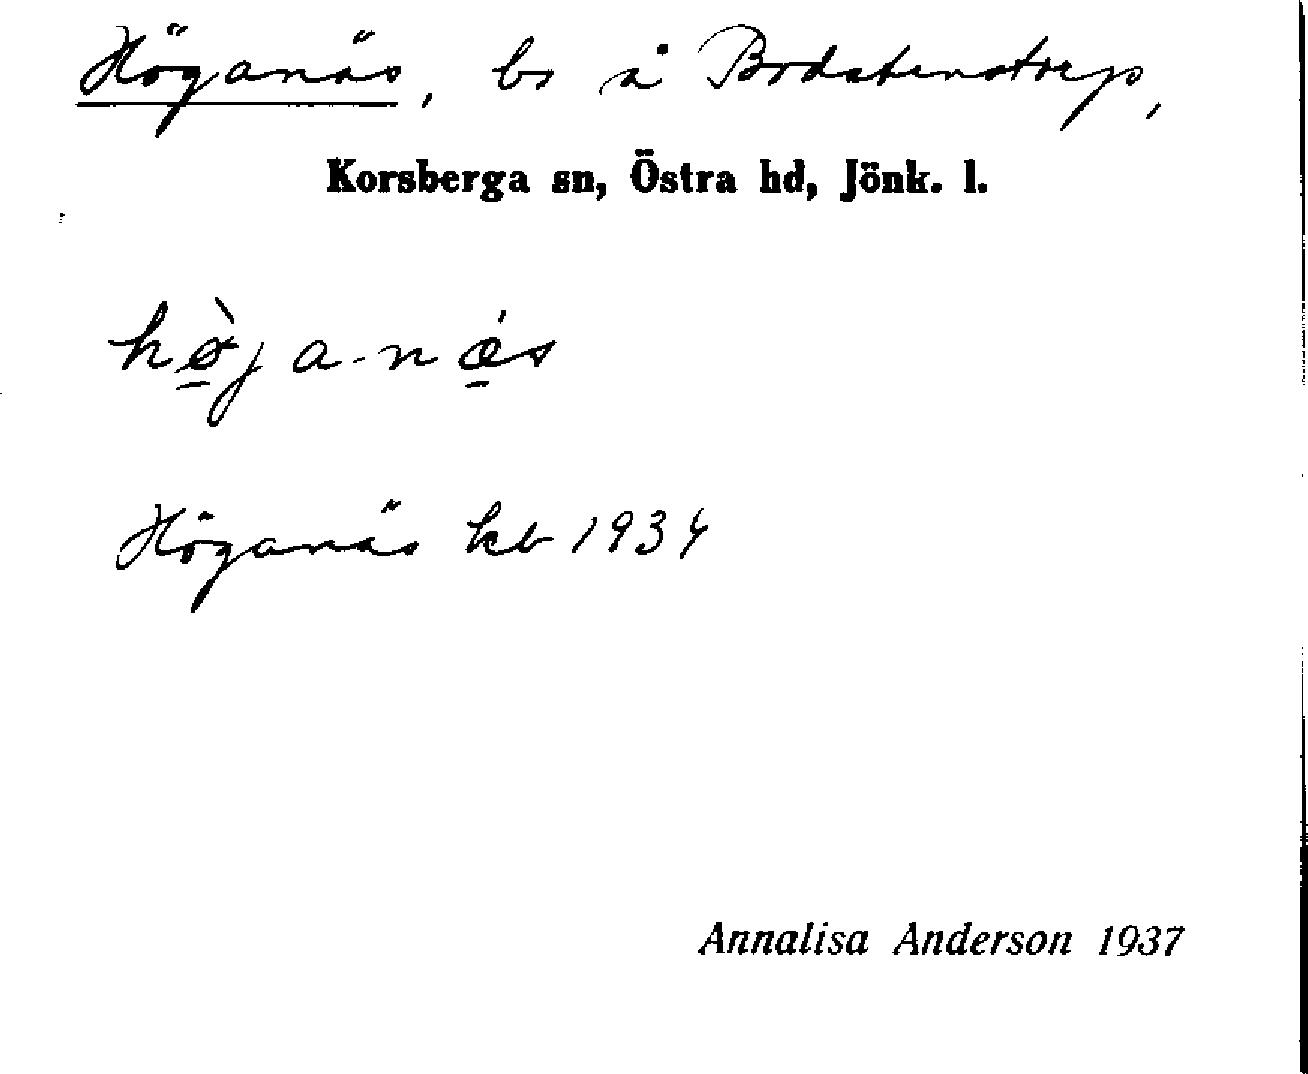 Höganäs, bs å Bodstenstorp,
Korsberga sn, Östra hd, Jönk. l.
hø̱̀ja-nǽ̱s
Höganäs kb 1934
Annalisa Anderson 1937